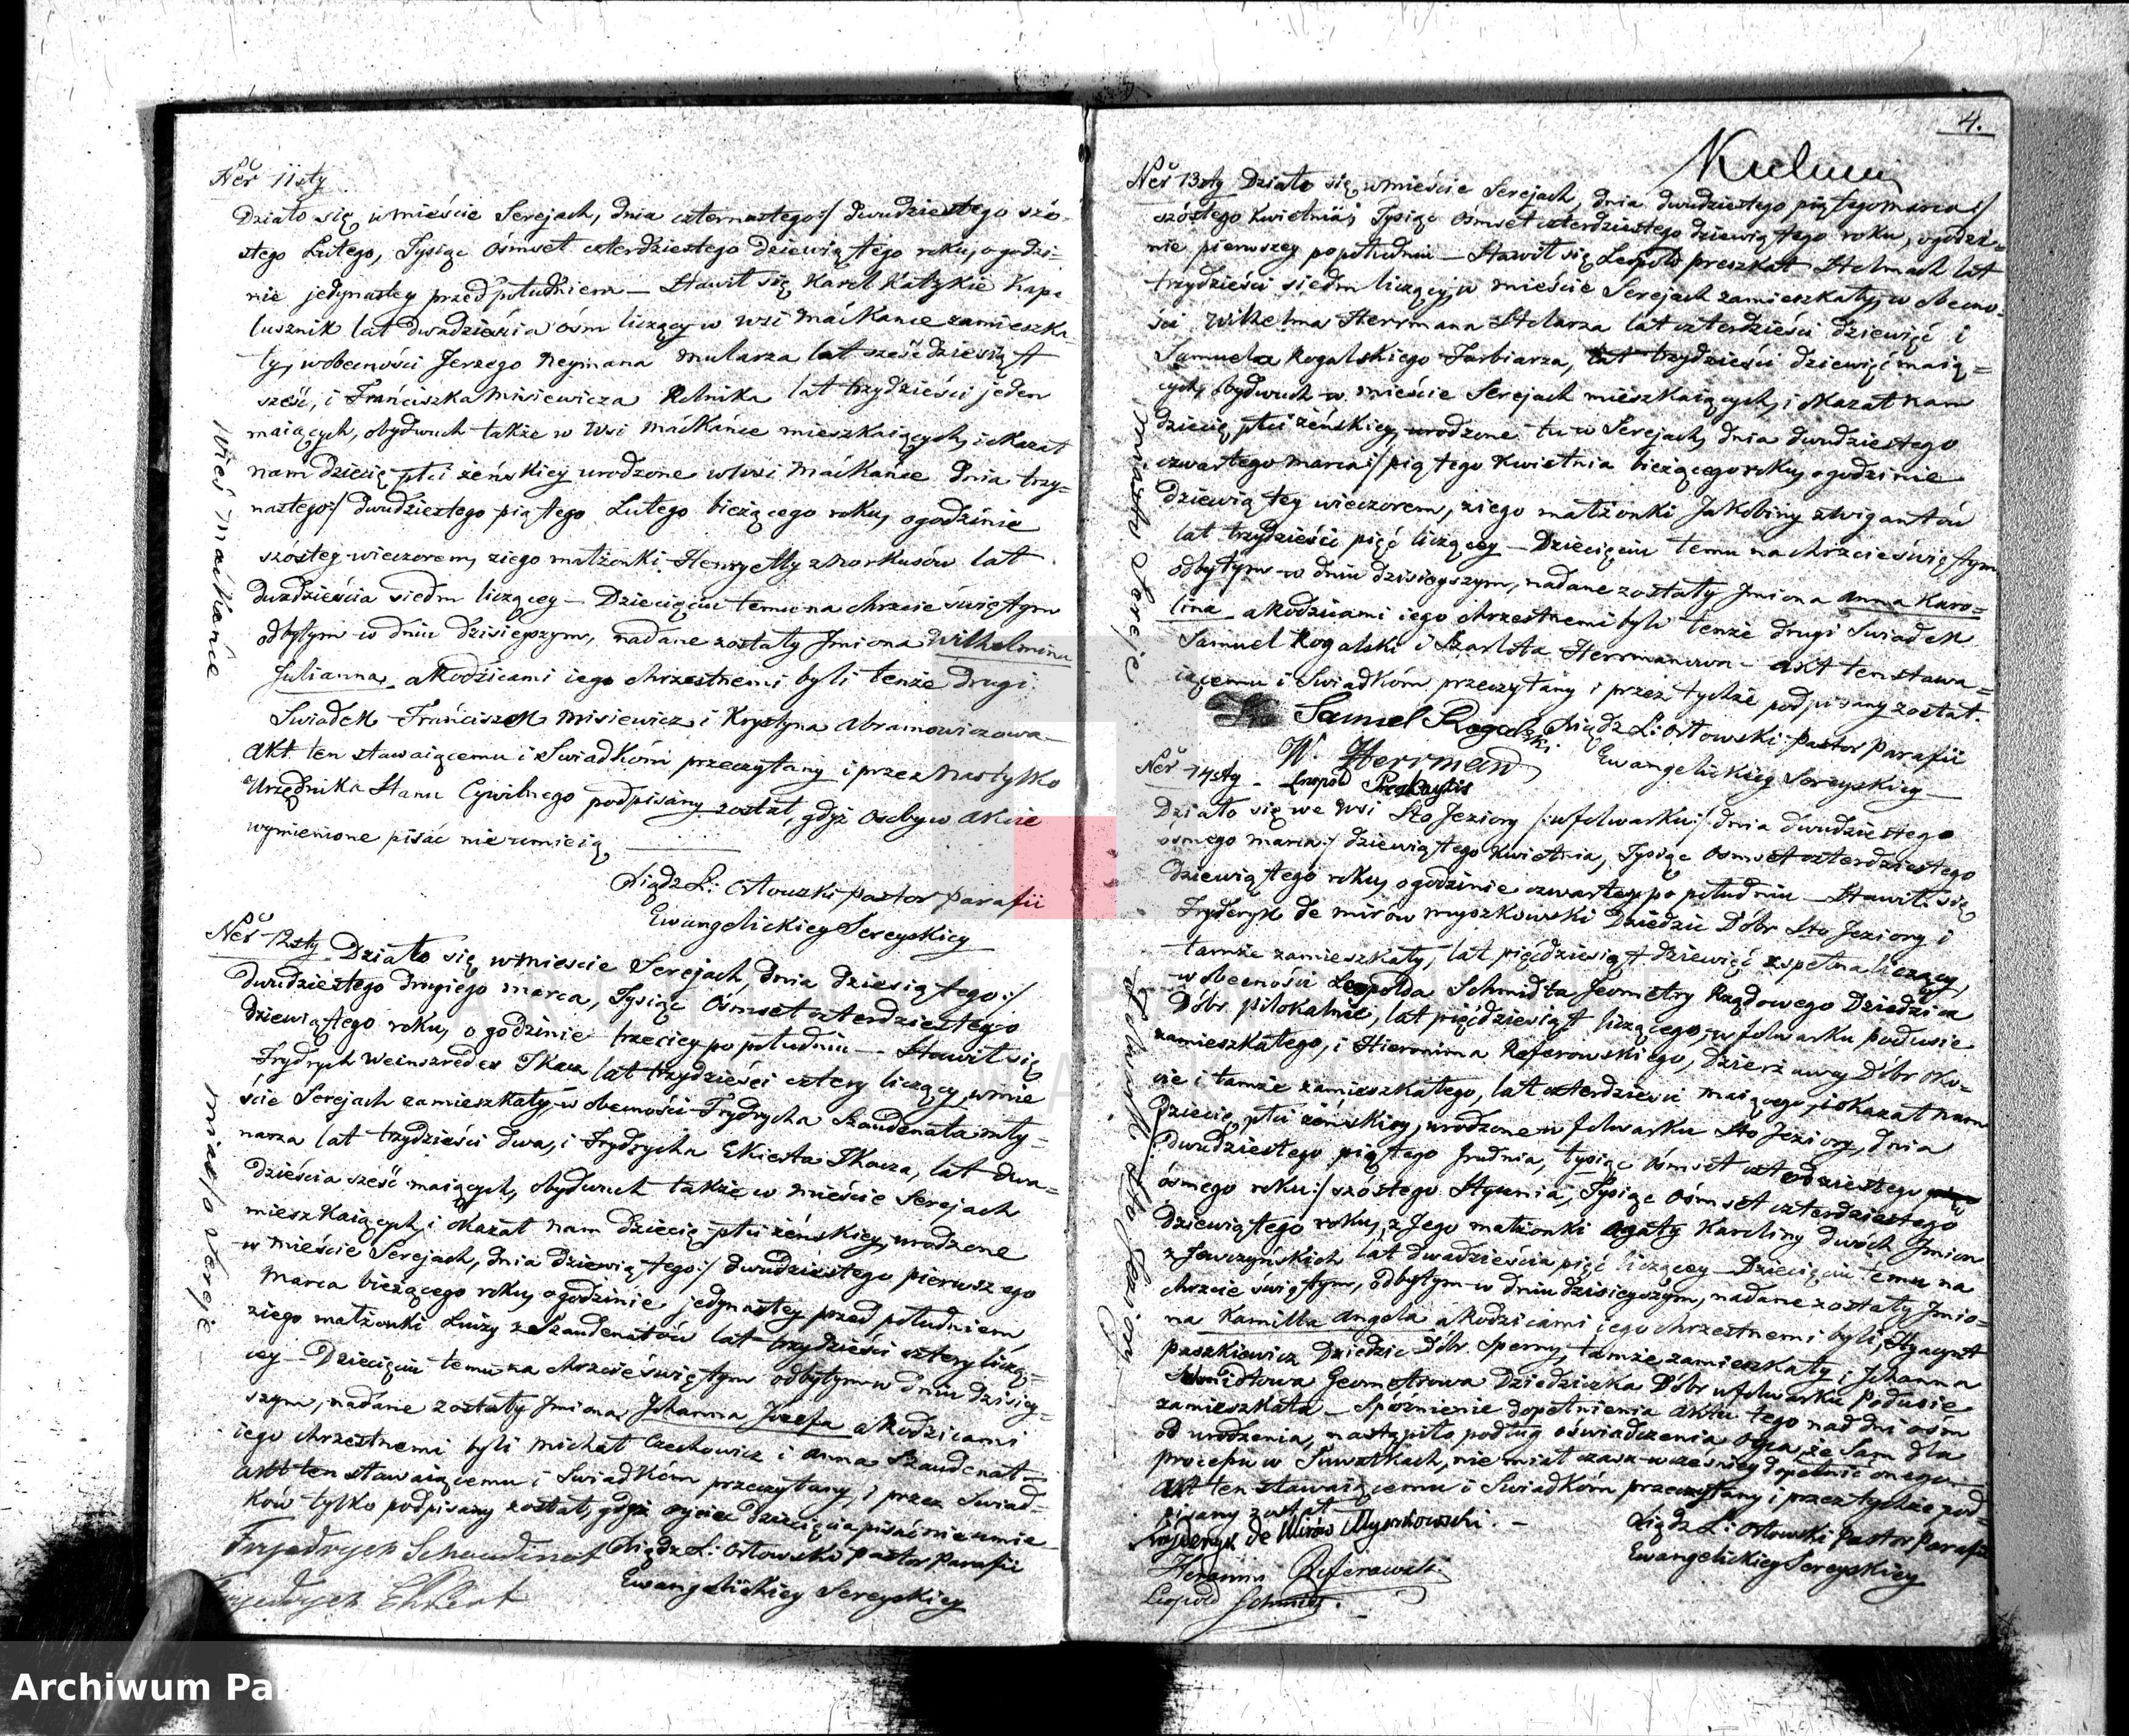 Ner 11sty
Działo się w mieście Serejach, dnia czternastego:/ dwudziestego szó-
stego Lutego, Tysiąc Ośmset czterdziestego Dziewiątego roku, o godzi-
nie jedynastey przed południem — Stawił się Karol Kape-
lusznik lat dwadzieścia ośm liczący w wsi Maćkańce zamieszka
ły, w obecności Jerzego Neymana mularza lat sześćdziesiąt
sześć, i Franciszka Misiewicza Rolnika lat trzydzieści jeden
maiących, obydwuch także w Wsi Maćkańce mieszkaiących, i okazał
nam dziecię płci żeńskiey urodzone w Wsi Maćkańce dnia trzy-
nastego:/ dwudziestego piątego Lutego bieżącego roku, o godzinie
szóstey wieczorem, z iego małżonki Henryetty z Morkusów lat
dwadzieścia siedm liczącey — Dziecięciu temu na chrzcie świętym
odbytym w dniu dzisieyszym, nadane zostały Jmiona Wilhelmina
Julianna, a Rodzicami iego chrzestnemi byli tenże drugi
Swiadek Franciszek Misiewicz i Krystyna Abramowiczowa —
Akt ten stawaiącemu i Swiadkóm przeczytany i przez Nas tylko
Urzędnika Stanu Cywilnego podpisany został, gdyż Osoby w Akcie
wymienione pisać nie umieią,
Xiądz L: Orłowski Pastor Parafii
Ewangelickiey Sereyskiey
wieś Maćkańce
Ner 12sty Działo się w Mieście Serejach, dnia dziesiątego:/
dwudziestego drugiego Marca, Tysiąc Ośmset czterdziestego
dziewiątego roku, o godzinie trzeciey po południu — Stawił się
Frydrych Weinszreder Tkacz lat trzydzieści cztery liczący, w mie
ście Serejach zamieszkały, w obecności Frydrycha Szaudenata mły-
narza lat trzydzieści dwa, i Frydrycha Ekierta Tkacza, lat dwa-
dzieścia sześć maiących, obydwuch także w mieście Serejach
mieszkaiących, i okazał nam dziecię płci żeńskiey, urodzone
w mieście Serejach, dnia dziewiątego:/ dwudziestego pierwszego
Marca bieżącego roku, o godzinie jedynastey przed południem,
z iego małżonki Luizy z Szaudenatów lat trzydzieści cztery liczą-
cey — Dziecięciu temu na chrzcie świętym odbytym w dniu dzisiey-
szym, nadane zostały Jmiona Johanna Jozefa a Rodzicami
iego chrzestnemi byli Michał Czechowicz i Anna Szaudenat —
Akt ten stawaiącemu i Swiadkóm przeczytany, i przez Swiad-
ków tylko podpisany został, gdyż oyciec dziecięcia pisać nie umie
Frydrych Schaudinat Xiądz L: Orłowski Pastor Parafii
Frydrych Ekkert Ewangelickiey Sereyskiey
miasto Sereje
4.
Ner 13sty Działo się w mieście Serejach, dnia dwudziestego piątego Marca:/
szóstego Kwietnia, Tysiąc Ośmset czterdziestego dziewiątego roku, o godzi-
nie pierwszey po południu — Stawił się Leopold Preszkat Stelmach lat
trzydzieści siedm liczący, w mieście Serejach zamieszkały, w obecno-
ści Wilhelma Herrmana Stolarza lat czterdzieści dziewięć i
Samuela Rogalskiego Farbiarza, lat trzydzieści dziewięć maią-
cych, obydwuch w mieście Serejach mieszkaiących, i okazał nam
dziecię płci żeńskiey, urodzone tu w Serejach, dnia dwudziestego
czwartego Marca:/ piątego Kwietnia bieżącego roku, o godzinie
dziewiątey wieczorem, z iego małżonki Jakobiny z Wigantów
lat trzydzieści pięć liczącey — Dziecięciu temu na chrzcie świętym
odbytym w dniu dzisieyszym, nadane zostały Jmiona Anna Karo-
lina a Rodzicami iego chrzestnemi byli tenże drugi Swiadek
Samuel Rogalski i Szarlota Herrmanowa — Akt ten stawa-
iącemu i Swiadkóm przeczytany i przez tychże podpisany został.
Samuel Rogalski Xiądz L: Orłowski Pastor Parafii
W. Herrman Ewangelickiey Sereyskiey —
Leopold
miasto Sereje
Ner 14sty —
Działo się we Wsi Sto Jeziory /:w folwarku:/ dnia dwudziestego
ósmego Marca:/ dziewiątego Kwietnia, Tysiąc Ośmset czterdziestego
dziewiątego roku, o godzinie czwartey po południu — Stawił się
Fryderyk de Mirów Myszkowski Dziedzic Dóbr Sto Jeziory i
tamże zamieszkały, lat pięćdziesiąt dziewięć zupełna liczący,
w obecności Leopolda Schmidta Jeometry Rządowego Dziedzica
Dóbr Pilokalnie, lat pięćdziesiąt liczącego, w folwarku Podusie
zamieszkałego, i Hieronima Referowskiego, Dzierżawcy Dóbr
cie i tamże zamieszkałego, lat czterdzieści maiącego, i okazał nam
dziecię płci żeńskiey, urodzone w folwarku Sto Jeziory, dnia
dwudziestego piątego Grudnia, tysiąc ośmset czterdziestego
ósmego roku:/ szóstego Stycznia, Tysiąc Ośmset czterdziestego
dziewiątego roku, z Jego małżonki Agaty Karoliny dwóch Jmion
z Jawczyńskich lat dwadzieścia pięć liczącey — Dziecięciu temu na
chrzcie świętym, odbytym w dniu dzisieyszym, nadane zostały Jmio-
na Kamilla Angela a Rodzicami jego chrzestnemi byli, Hyacynt
Paszkiewicz Dziedzic Dóbr Sperny, tamże zamieszkały i Johanna
Schmidtowa Geometrowa Dziedziczka Dóbr w folwarku Podusie
zamieszkała — Spóźnienie dopełnienia Aktu tego nad dni ośm
od urodzenia, nastąpiło podług oświadczenia Oyca, że Sam dla
procesu w Suwałkach, nie miał czasu wcześniey dopełnić onego —
Akt ten stawaiącemu i Swiadkóm przeczytany i przez tychże pod-
pisany został
Fryderyk de Mirów Myszkowski. — Xiądz L: Orłowski Pastor Parafii
Hieronim Referowski Ewangelickiey Sereyskiey
Leopold Schmidt. —
Folwark Sto Jeziory
Archiwum Pań